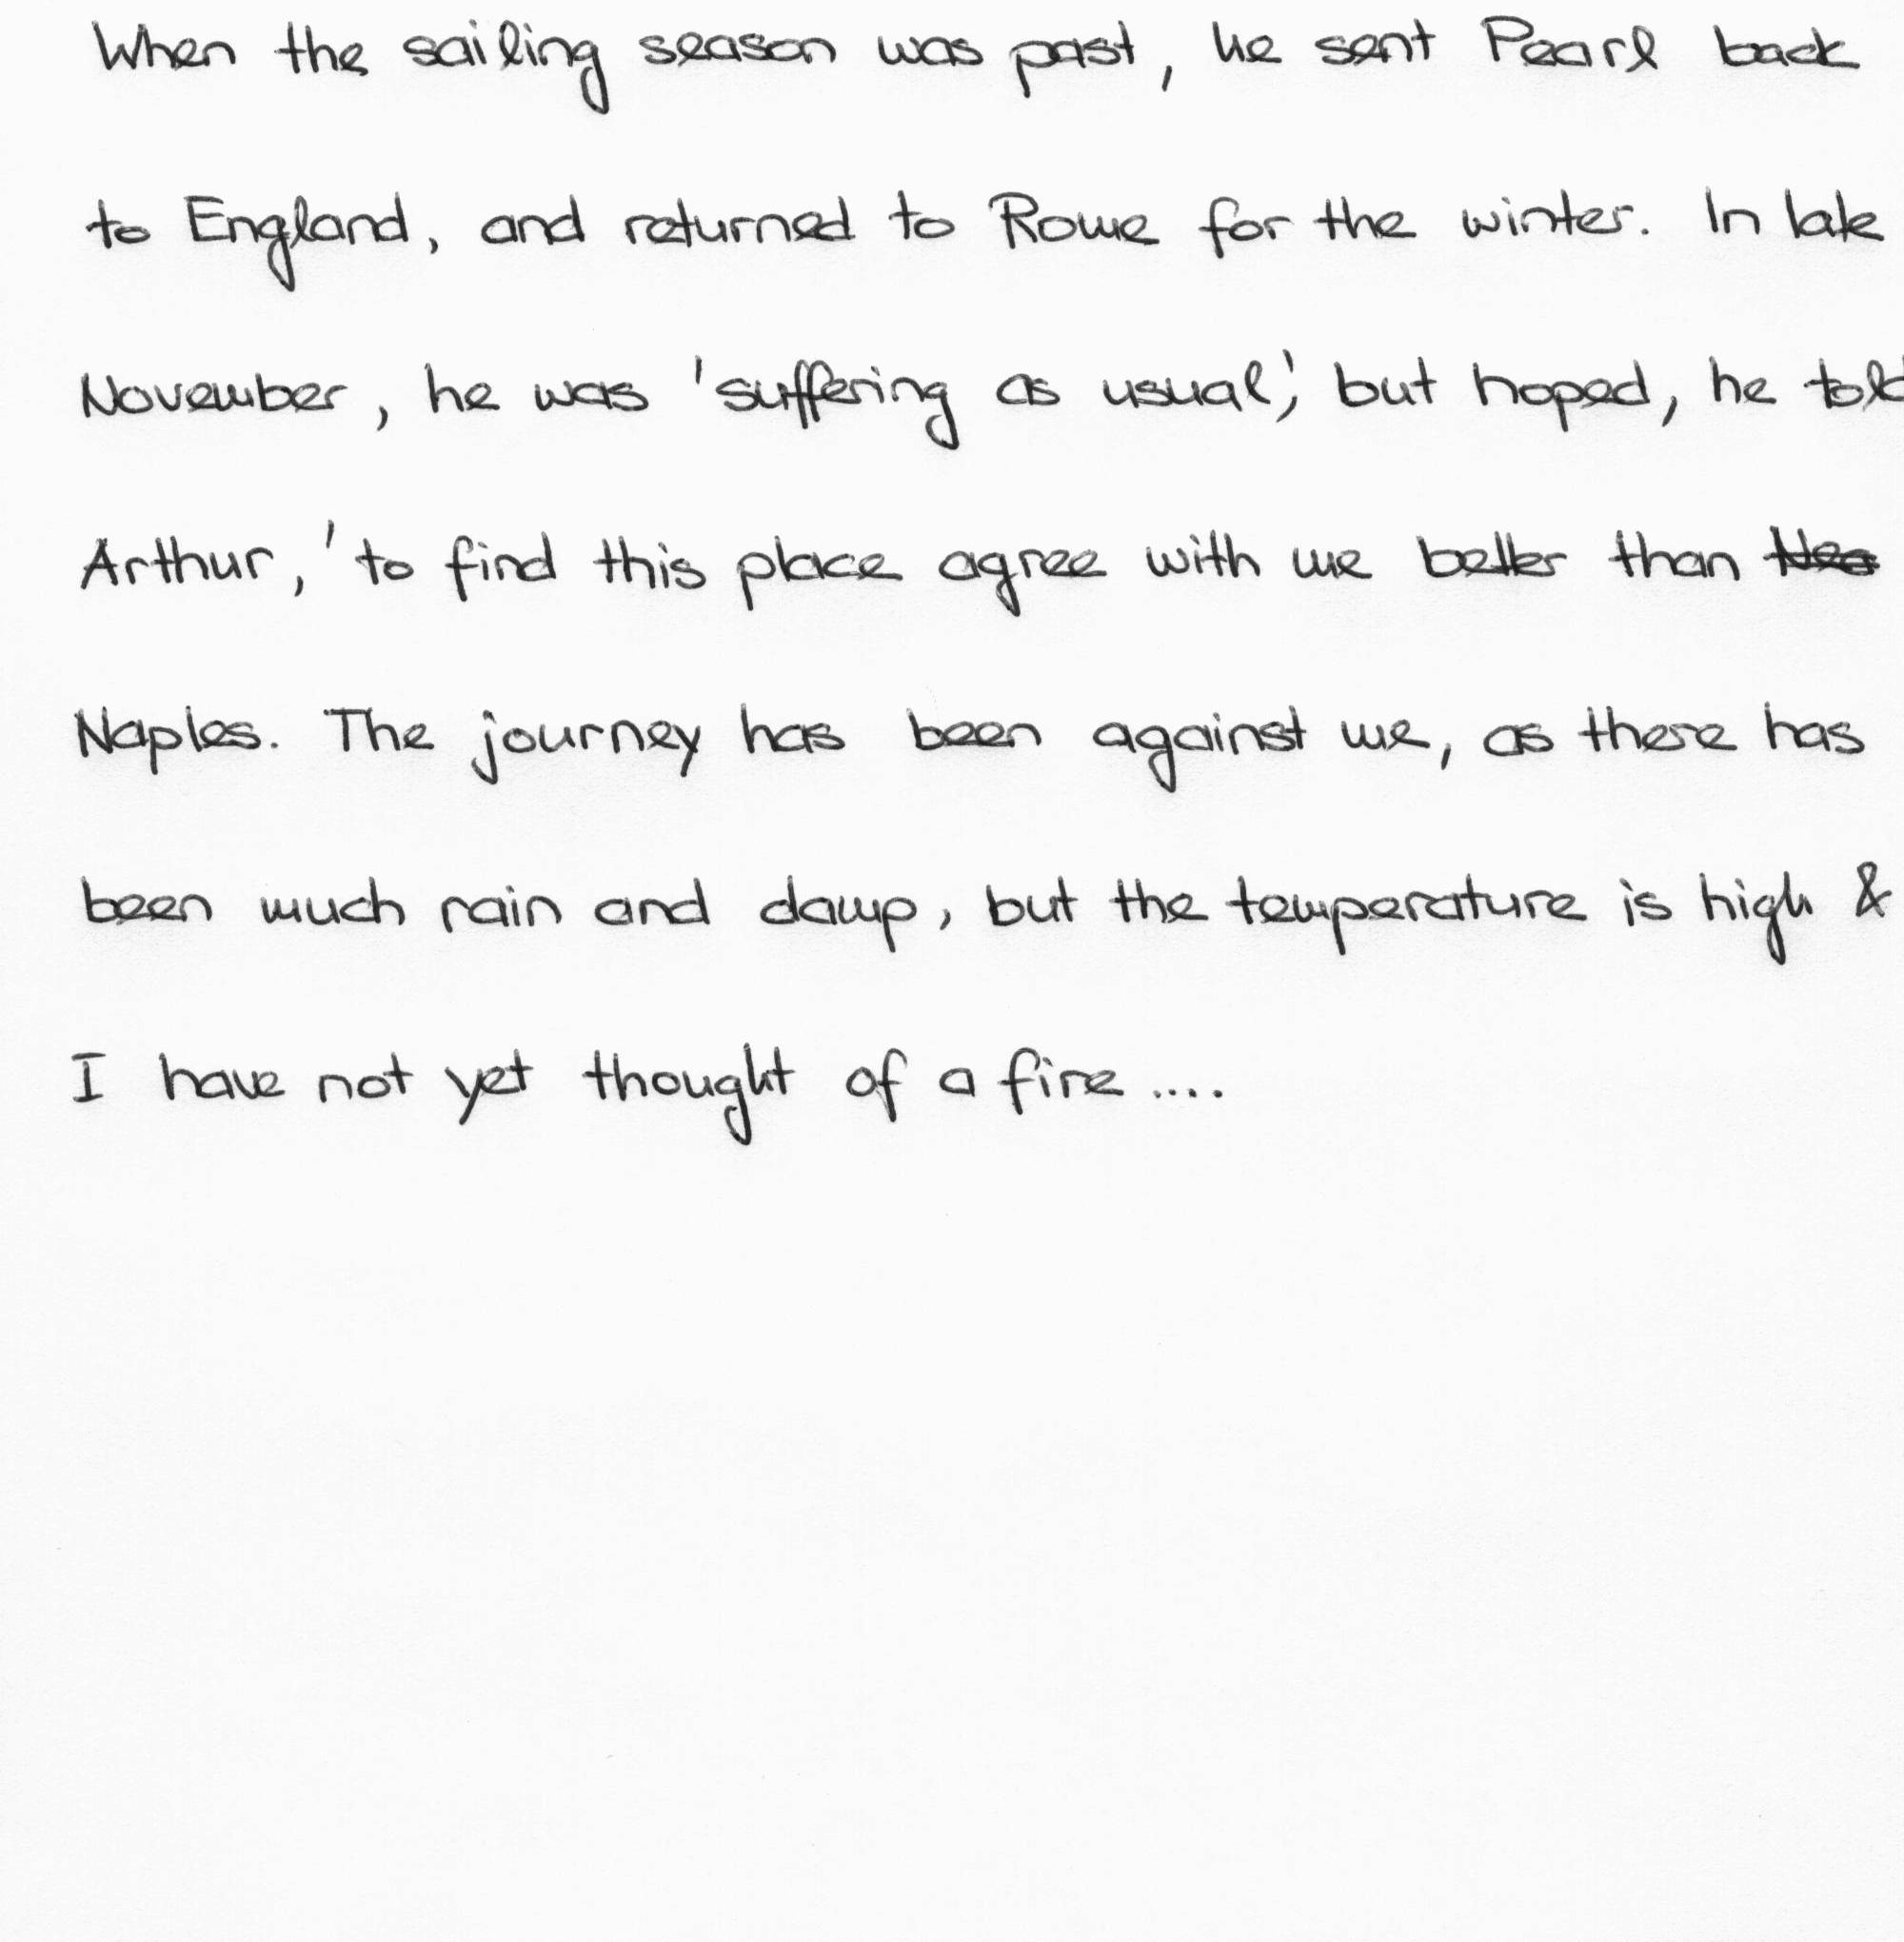 When the sailing season was past, he sent Pearl back
to England, and returned to Rome for the winter. In late
November, he was 'suffering as usual,' but hoped, he told
Arthur, 'to find this place agree with me better than
Naples. The journey has been against me, as there has
been much rain and damp, but the temperature is high &
I have not yet thought of a fire....